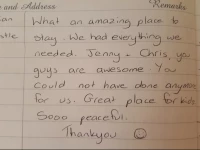 and Address Remarks
What an amazing place to
stay. We had everything we
needed. Jenny + Chris, you
guys are awesome You
could not have done anymore
for us. Great place for kids
Sooo peaceful.
Thankyou ☺